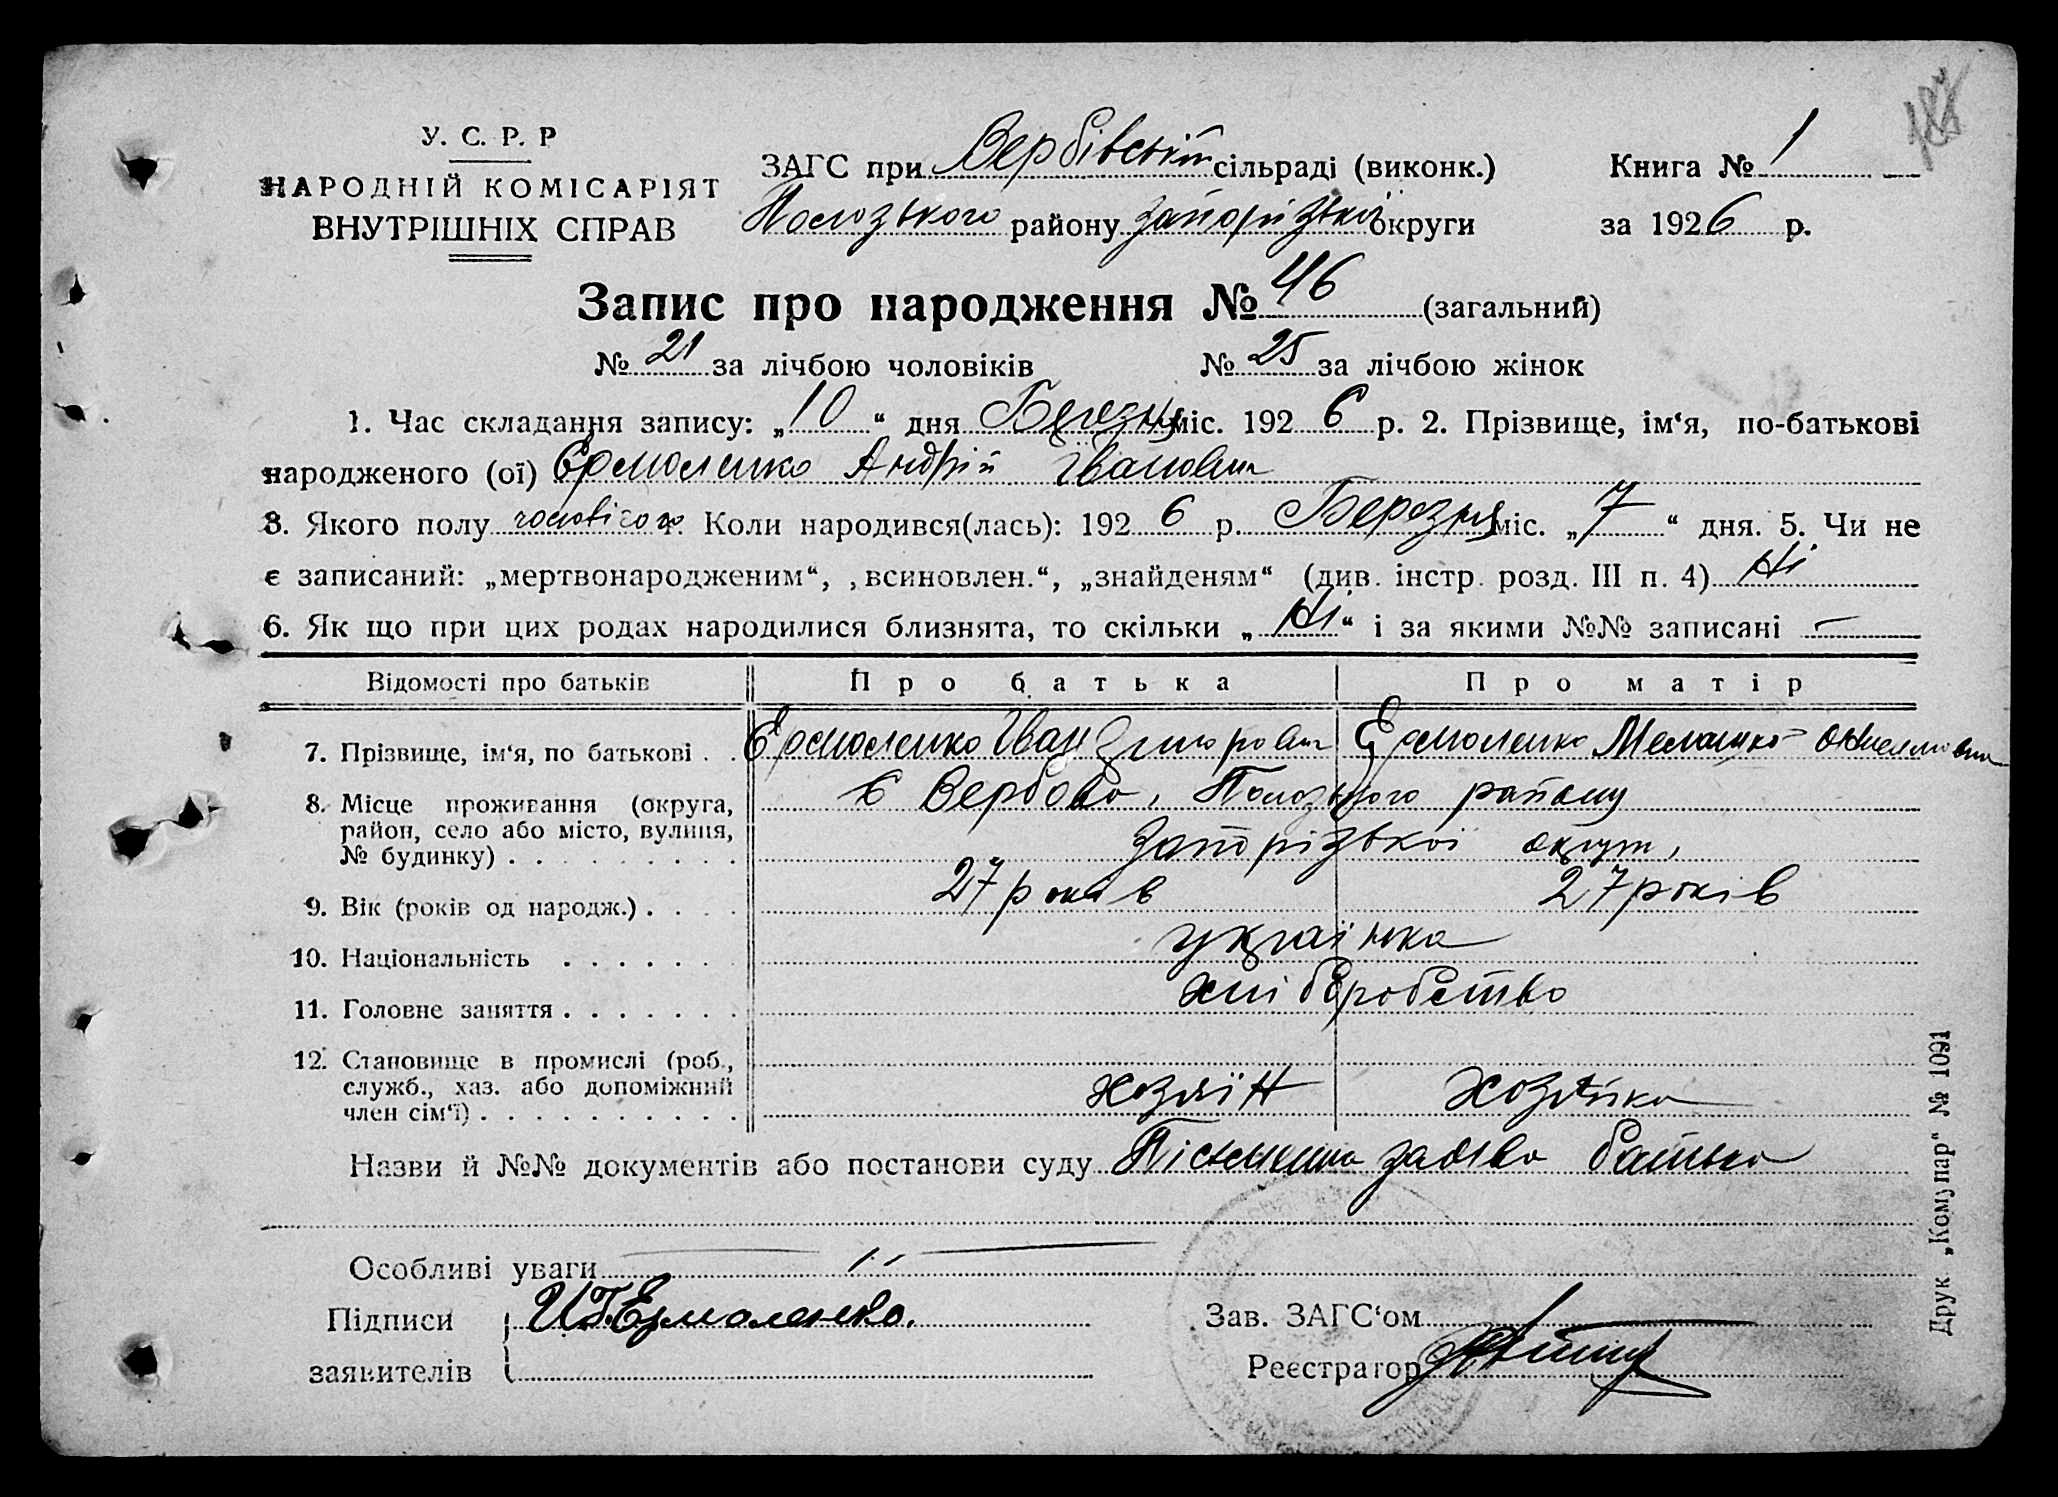 188
У. С. Р. Р
НАРОДНІЙ КОМІСАРІЯТ
ВНУТРІШНІХ СПРАВ
ЗАГС при Вербівській сільраді (виконк.)
Пологзького району Запорізької округи
Книга № 1
за 1926 р.
Запис про народження № 46 (загальний)
№ 21 за лічбою чоловіків № 25 за лічбою жінок
1. Час складання запису: „10“ дня Березня міс. 1926 р. 2. Прізвище, ім‘я, по-батькові
народженого (ої) Єрмоленко Андрій Іванович
3. Якого полу чоловічого 4. Коли народився(лась): 1926 р. Березня міс. „7“ дня. 5. Чи не
є записаний: „мертвонародженим“, „всиновлен.“, „знайденям“ (див. інстр. розд. III п. 4) Ні
6. Як що при цих родах народилися близнята, то скільки „Ні“ і за якими №№ записані —
Відомості про батьків Про батька Про матір
7. Прізвище, ім‘я, по батькові . . Єрмоленко Іван Єрмоленко Мелашка
8. Місце проживання (округа,
район, село або місто, вулиця,
№ будинку) . . . . . . . . .
с Вербово, Пологзького району
Запорізької округи,
9. Вік (років од народж.) . . . . 27 років 27 років
10. Національність . . . . . . . українка
11. Головне заняття . . . . . . . хліборобство
12. Становище в промислі (роб.,
служб., хаз. або допоміжний
член сім‘ї) . . . . . . . . . . хозяїн хозяйка
Назви й №№ документів або постанови суду Пісьменна заява батька
Особливі уваги
Підписи И. Г. Ермоленко.
заявителів
Зав. ЗАГС‘ом
Реєстратор
Друк. „Комунар“ № 1091